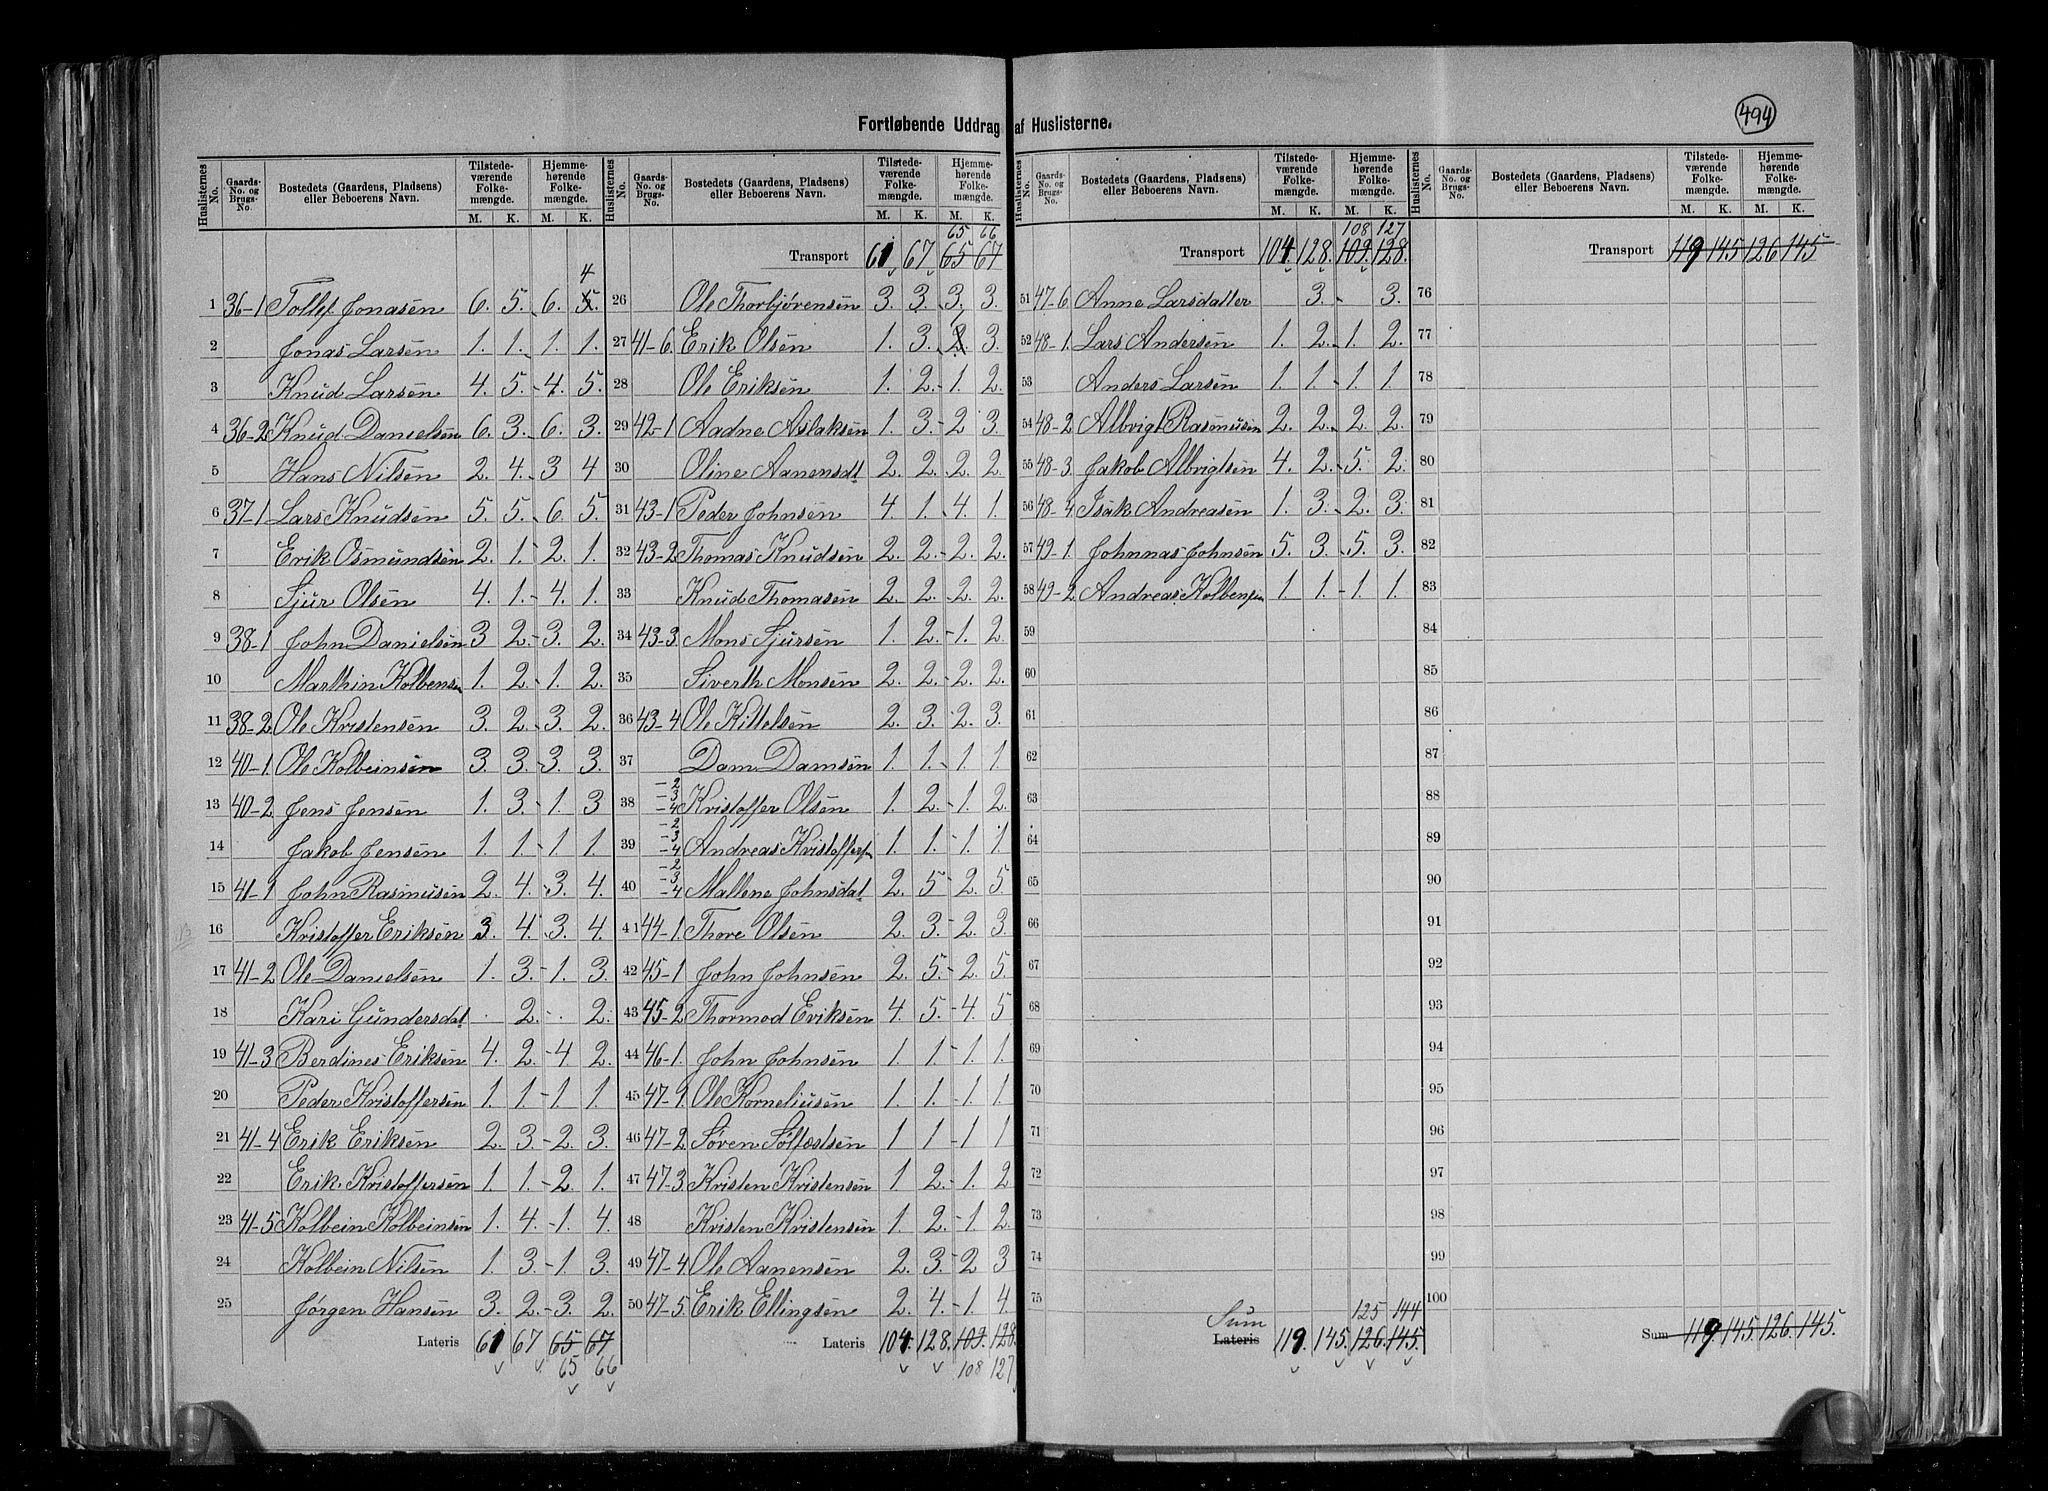 494
Fortløbende Uddrag af Huslisterne.
Huslisternes No. | Gaards-No. og Brugs-No. | Bostedets (Gaardens, Pladsens) eller Beboerens Navn. | Tilstedeværende Folkemængde. M. K. | Hjemmehørende Folkemængde. M. K.
4
1 36-1 Tollef Jonasen 6. 5. 6. 5.
2 Jonas Larsen 1. 1. 1. 1.
3 Knud Larsen 4. 5. 4. 5.
4 36-2 Knud Danielsen 6. 3. 6. 3.
5 Hans Nilsen 2. 4. 3 4
6 37-1 Lars Knudsen 5. 5. 6. 5.
7 Erik Osmundsen 2. 1. 2. 1.
8 Sjur Olsen 4. 1. 4. 1.
9 38-1 John Danielsen 3 2. 3. 2.
10 Marthin Kolbensen 1. 2. 1. 2.
11 38-2 Ole Kristensen 3. 2. 3. 2.
12 40-1. Ole Kolbeinsen 3. 3. 3. 3.
13 40-2 Jens Jensen 1. 3. 1. 3
14 Jakob Jensen 1. 1. 1. 1.
15 41-1 John Rasmusen 2. 4. 3. 4.
16 Kristoffer Eriksen 3. 4. 3. 4.
17 41-2 Ole Danielsen 1. 3. 1. 3.
18 Kari Gundersdat 2. 2.
19 41-3 Berdines Eriksen 4. 2. 4. 2.
20 Peder Kristoffersen 1. 1. 1. 1.
21 41-4 Erik Eriksen 2. 3. 2. 3.
22 Erik Kristoffersen 1. 1. 2. 1.
23 41-5 Kolbein Kolbeinsen 1. 4. 1. 4.
24 Kolbein Nilsen 1. 3. 1. 3.
25 Jørgen Hansen 3. 2. 3. 2.
Lateris 61 67 65 67
65 66
Huslisternes No. | Gaards-No. og Brugs-No. | Bostedets (Gaardens, Pladsens) eller Beboerens Navn. | Tilstedeværende Folkemængde. M. K. | Hjemmehørende Folkemængde. M. K.
65 66
Transport 61 67 65 67
26 Ole Thorbjørensen 3. 3. 3. 3.
1
27 41-6. Erik Olsen 1. 3. 2. 3.
28 Ole Eriksen 1. 2. 1. 2.
29 42-1 Aadne Aslaksen 1. 3. 2 3.
30 Oline Aanensdt 2. 2. 2. 2
31 43-1 Peder Johnsen 4. 1. 4. 1.
32 43-2 Thomas Knudsen 2. 2. 2. 2.
33 Knud Thomasen 2. 2. 2. 2
34 43-3. Mons Sjursen 1. 2. 1. 2.
35 Siverth Monsen 2. 2. 2. 2.
36 43-4 Ole Kittelsen 2. 3. 2. 3.
37 Dam Damsen 1. 1. 1. 1
38 -2 -3 -4 Kristoffer Olsen 1. 2. 1. 2.
39 -2 -3 -4 Andreas Kristoffersen 1. 1. 1. 1
40 -2 -3 -4 Mallene Johnsdat 2. 5 2. 5
41 44-1. Thore Olsen 2. 3. 2. 3
42 45-1 John Johnsen 2. 5. 2. 5.
43 45-2 Thormod Eriksen 4. 5. 4. 5
44 46-1. John Johnsen 1. 1. 1. 1
45 47-1. Ole Korneliusen 1. 1. 1. 1
46 47-2. Søren 1 1 1 1
47 47-3. Kristen Kristensen 1 2. 1. 2
48 Kristen Kristensen 1. 2. 1. 2.
49 47-4. Ole Aanensen 2. 3. 2 3
50 47-5. Erik Ellingsen 2. 4. 1. 4.
Lateris 104. 128. 109. 128.
108 127
Huslisternes No. | Gaards-No. og Brugs-No. | Bostedets (Gaardens, Pladsens) eller Beboerens Navn. | Tilstedeværende Folkemængde. M. K. | Hjemmehørende Folkemængde. M. K.
108 127
Transport 104. 128. 109. 128.
51 47-6 Anne Larsdatter 3. 3.
52 48-1. Lars Andersen 1. 2. 1. 2.
53 Anders Larsen 1. 1. 1. 1.
54 48-2 Albrigt Rasmusen 2. 2. 2. 2
55 48-3. Jakob Albrigtsen 4. 2. 5. 2.
56 48-4 Isak Andreasen 1. 3. 2. 3.
57 49-1. Johnnas Johnsen 5. 3. 5. 3.
58 49-2. Andreas Kolbensen 1. 1. 1. 1.
59
60
61
62
63
64
65
66
67
68
69
70
71
72
73
74
75
125 144
Sum
Lateris 119. 145. 126. 145.
Huslisternes No. | Gaards-No. og Brugs-No. | Bostedets (Gaardens, Pladsens) eller Beboerens Navn. | Tilstedeværende Folkemængde. M. K. | Hjemmehørende Folkemængde. M. K.
Transport 119 145 126 145
76
77
78
79
80
81
82
83
84
85
86
87
88
89
90
91
92
93
94
95
96
97
98
99
100
Sum 119. 145. 126. 145.